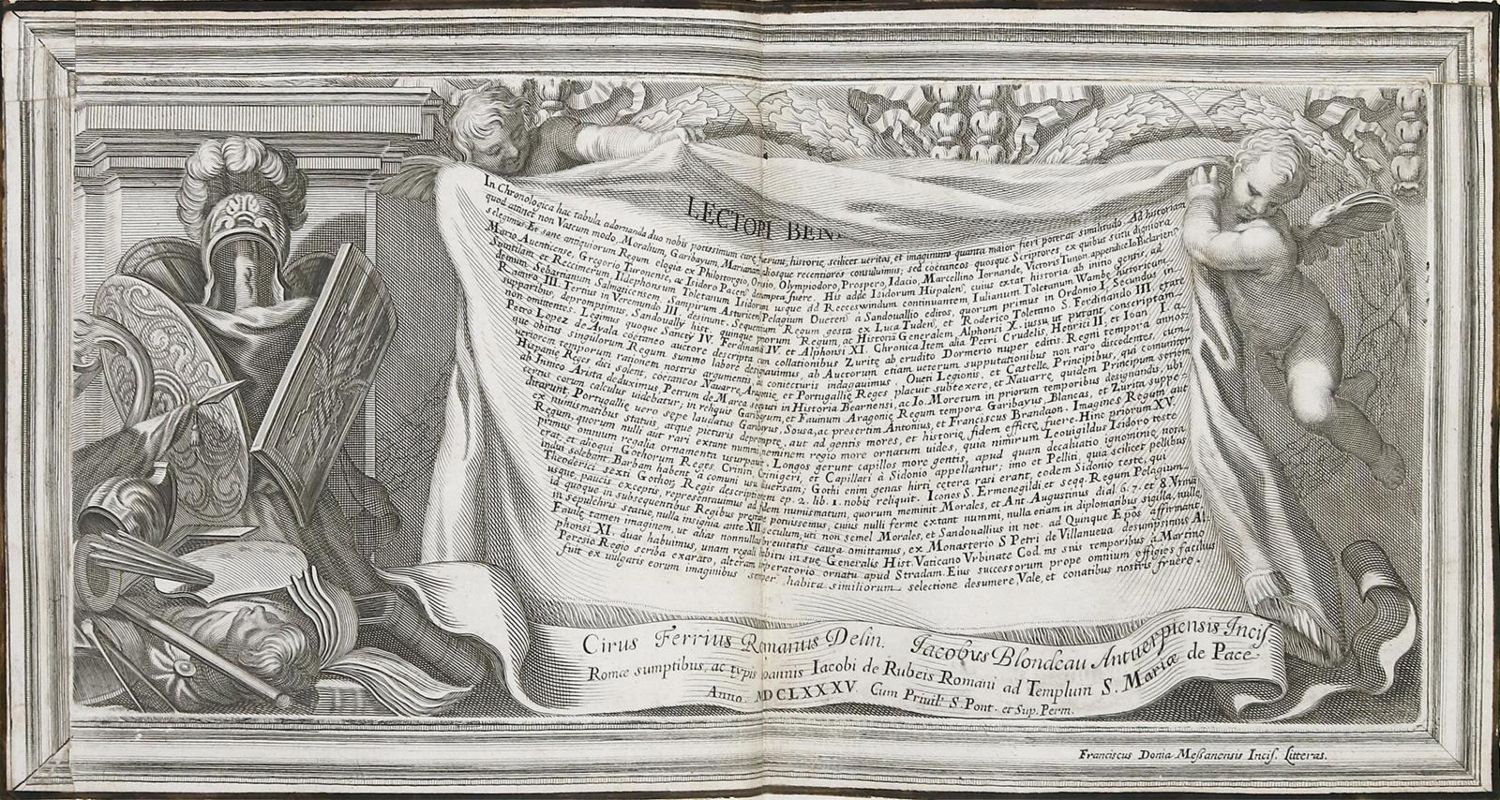 LECTORI BEN
In Chronologica hac tabula adornanda duo nobis potissimum curæ fuerunt, historiæ scilicet veritas, et imaginum quanta maior fieri poterat similitudo. Ad historiam
quod attinet non Vasæum modo, Moralium, Garibayum, Marianam aliosque recentiores consuluimus; sed coetaneos quosque Scriptores, ex quibus scitu digniora
selegimus. Et sane antiquiorum Regum elogia ex Philostorgio, Orosio, Olympiodoro, Prospero, Idacio, Marcellino Iornande, Victoris Tunon. appendice Io. Biclariens.
Mario Aventicense, Gregorio Turonens. ac Isidoro Pacen. deumpta fuere. His adde Isidorum Hispalen. cuius extat historia ab initio gentis, ad
Suintilam et Reccimerum, Ildephonsum Toletanum Isidorum usque ad Recceswindum continuantem, Iulianum Toletanum Wambæ historicum,
demum Sebastianum Salmaticensem Sampirum Asturicen. Pelagium Oueten. a Sandouallio editos, quorum primus in Ordonio I. Secundus in
Ramiro III. Tertius in Veremundo III. desinunt. Sequentium Regum gesta ex Luca Tuden. et Roderico Toletano S. Ferdinando III. ferè
supparibus, deprompsimus, Sandouallij hist. quinque priorum Regum, ac Historia Generalem Alphonsi X. iussu, ut putant, conscriptam
non omittentes. Legimus quoque Sanctij IV. Ferdinandi IV. et Alphonsi XI. Chronica. Item alia Petri Crudelis, Henrici II. et Ioan. I. a
Petro Lopez de Ayala coetaneo auctore descripta cum collationibus Zuritæ ab erudito Dormerio nuper editis. Regni tempora annos-
que obitus singulorum Regum summo labore designauimus, ab Auctorum etiam veterum supputationibus non raro discedentes, cum
veriorem temporum rationem nostris argumentis, ac coniecturis indagauimus. Oueti Legionis, et Castellæ Principibus, qui communiter
Hispaniæ Reges dici solent, coetaneos Nauarræ Aragoniæ, et Portugalliæ Reges placuit subtexere, et Nauarræ quidem Principum seriem
ab Innico Arista deduximus Petrum de Marca sequuti in Historia Bearnensi, ac Io. Moretum in priorum temporibus designandis, ubi
certus eorum calculus videbatur; in reliquis Garibayum, et Fauinum Aragoniæ Regum tempora Garibayus Blancas, et Zurita suppe-
ditarunt, Portugalliæ vero sæpe laudatus Garibayus, Sousa, ac presertim Antonius, et Franciscus Brandaon. Imagines Regum aut
ex numismatibus statuis, atque picturis depromptæ, aut ad gentis mores, et historiæ fidem effictæ fuere. Hinc priorum XV.
Regum, quorum nulli aut rari extant nummi neminem regio more ornatum uides, quia nimirum Leouigildus Isidoro teste
primus omnium regalia ornamenta usurpauit. Longos gerunt capillos more gentis, apud quam decaluatio ignominiæ nota
erat, et alioqui Gothorum Reges, Criniti, Crinigeri, et Capillati à Sidonio appellantur; imo et Pelliti, quia scilicet pellibus
indui solebant. Barbam habent a comuni usu diuersam; Gothi enim genas hirti cetera rasi erant, eodem Sidonio teste, qui
Theoderici sexti Gothor. Regis descriptionem ep. 2. lib. 1. nobis reliquit. Icones S. Ermenegildi, et seqq. Regum Pelagium
usque, paucis exceptis, representauimus ad fidem numismatum, quorum meminit Morales, et Ant. Augustinus dial. 6. 7. et 8. Vtina
id quoque in subsequentibus Regibus præstare potuissemus, cuius nulli ferme extant nummi, nulla etiam in diplomatibus sigilla, nullæ
in sepulchris statuæ, nulla insignia ante XII. seculum, uti non semel Morales, et Sandouallius in not. ad Quinque Epos affirmant,
Fauilæ tamen imaginem, ut alias nonnullas breuitatis causa omittamus, ex Monasterio S. Petri de Villanueua desumpsimus Al-
phonsi XI. duas habuimus, unam regali habitu in suæ Generalis Hist. Vaticano Vrbinate Cod. ms suis temporibus à Martino
Peresio Regio scriba exarato, alteram imperatorio ornatu apud Stradam. Eius successorum prope omnium effigies facilius
fuit ex uulgatis eorum imaginibus semper habita similiorum selectione desumere. Vale, et conatibus nostris fruere.
Cirus Ferrius Romanus Delin. Jacobus Blondeau Antuerpiensis Incis
Romæ sumptibus, ac typis Ioannis Iacobi de Rubeis Romani ad Templum S. Mariæ de Pace
Anno. MDCLXXXV Cum Priuil. S. Pont. et Sup. Perm.
Franciscus Donia Messanensis Incis. Litteras.